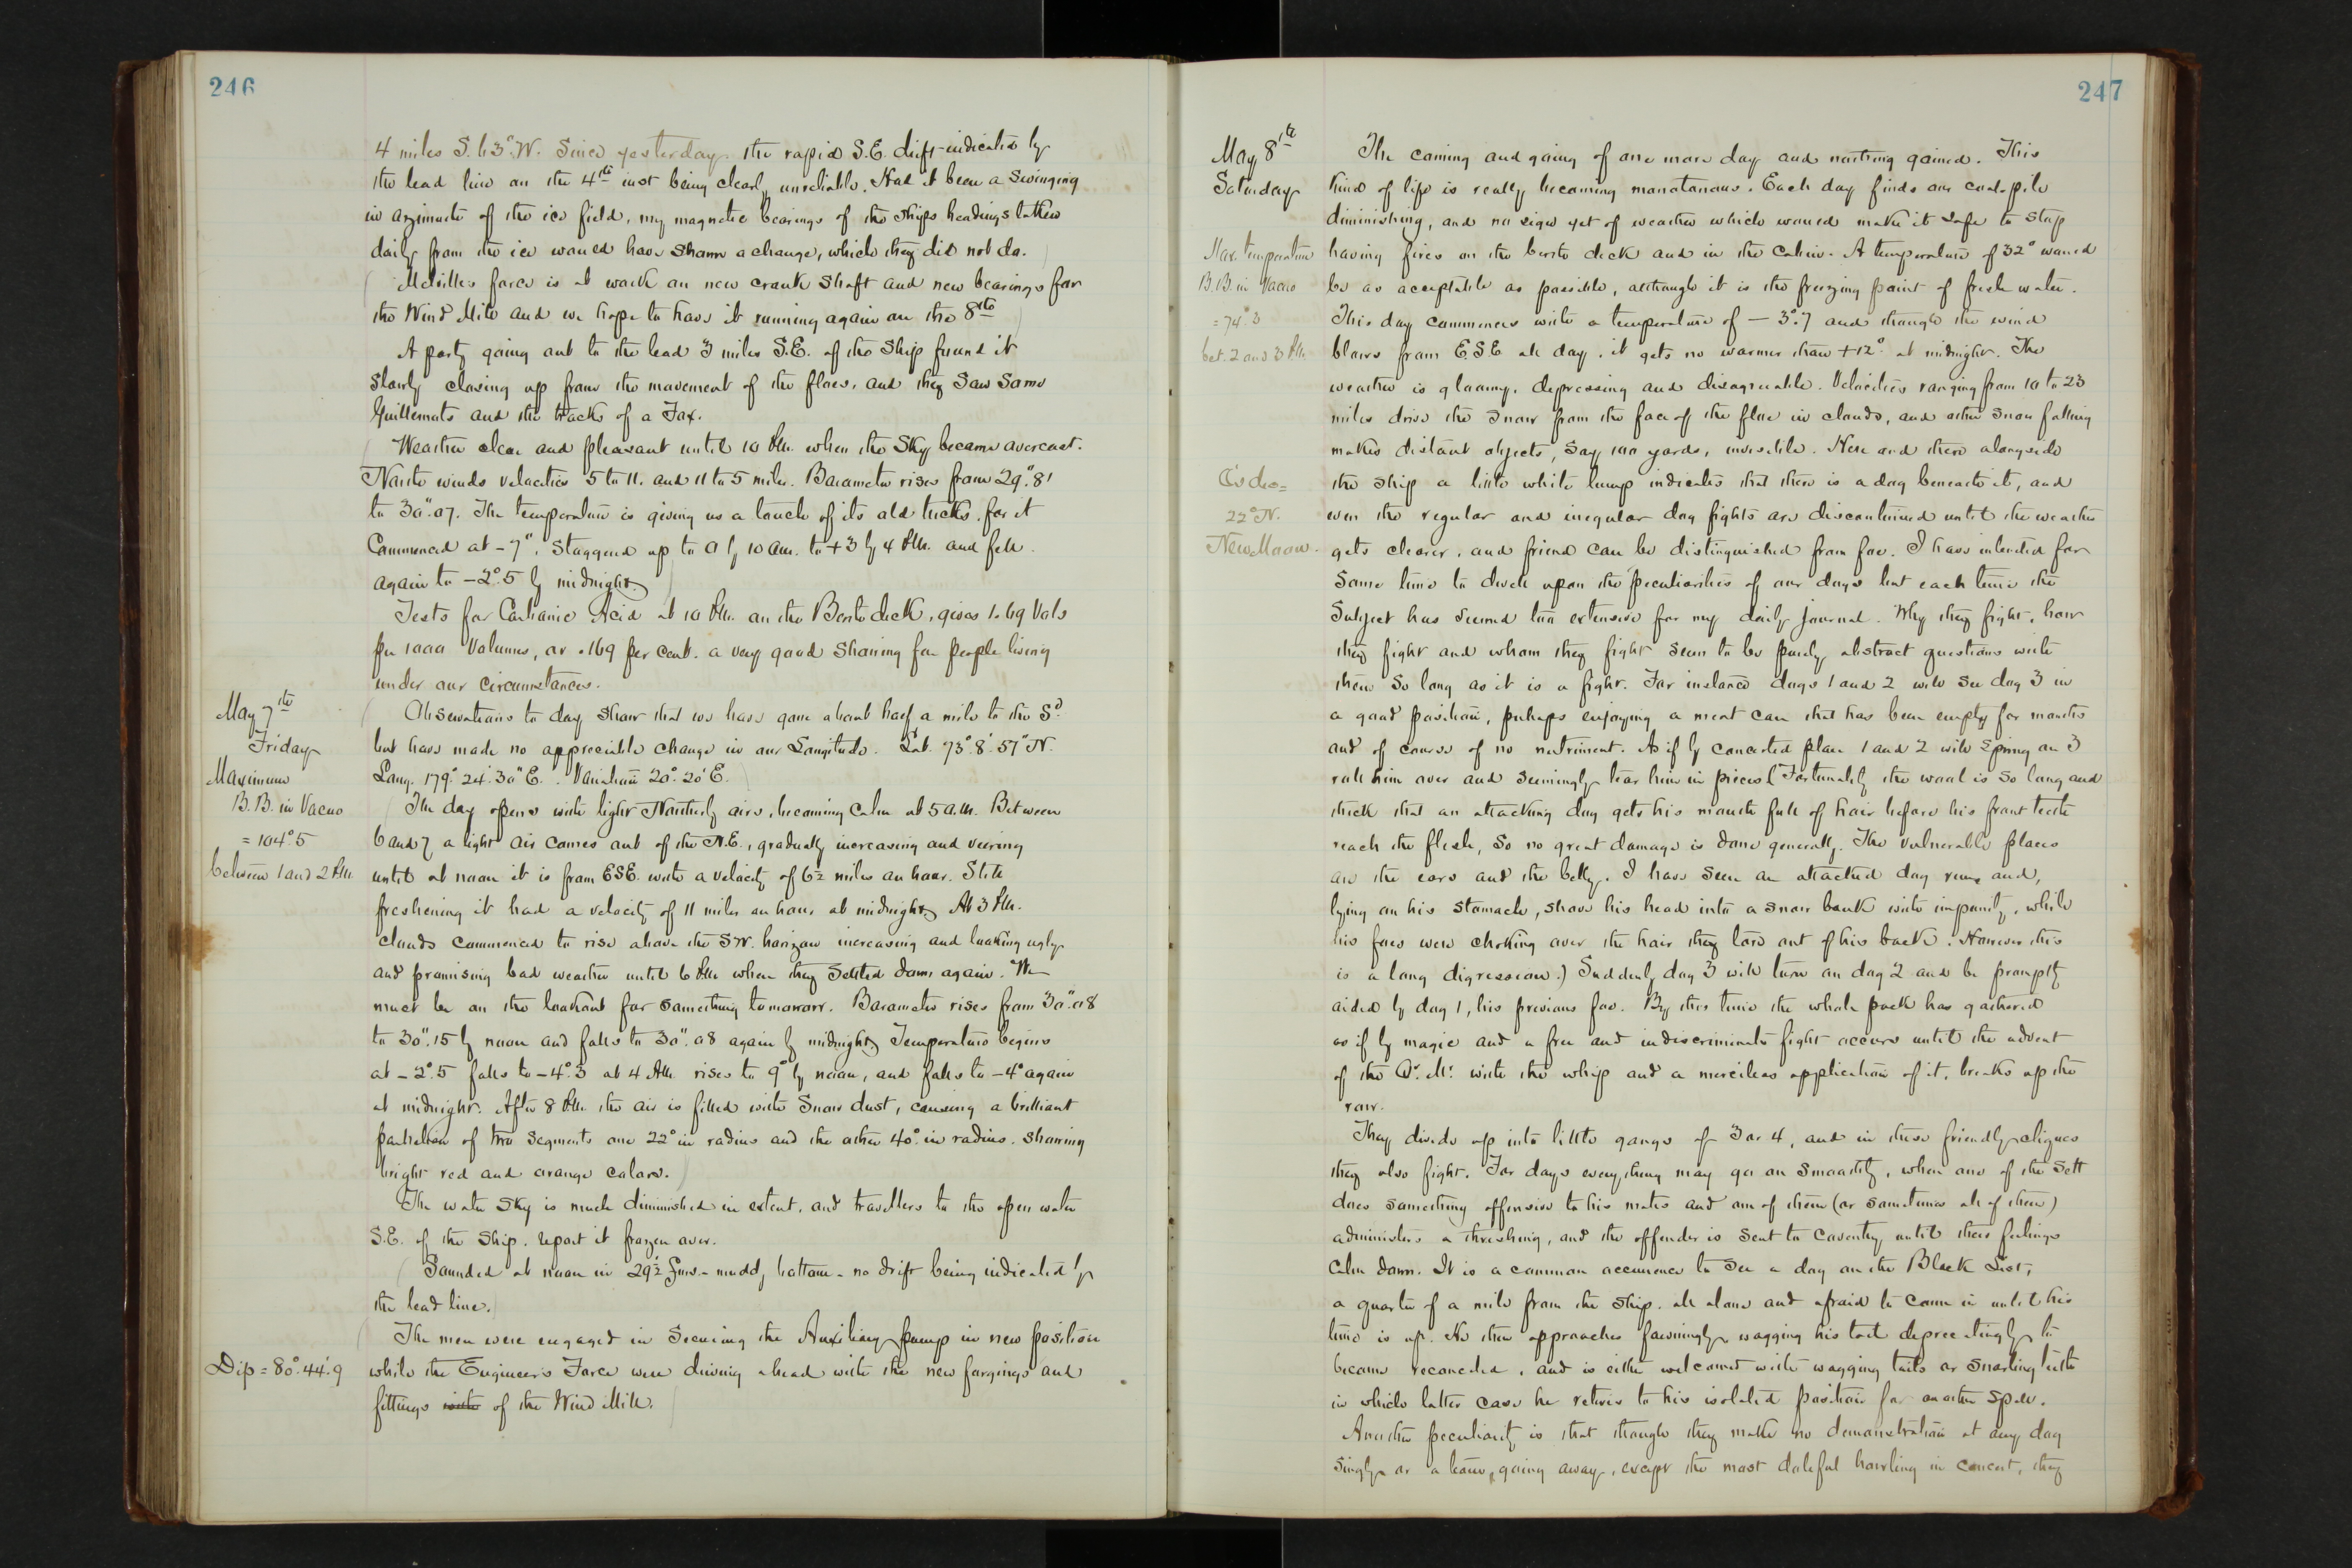 246
4 miles S. 63° W. Since yesterday the rapid S.E. drift indicated by
the lead line on the 4th inst being clearly unreliable. Had it been a swinging
in azimuth of the ice field, my magnetic bearings of the ships heading taken
daily from the ice would have shown a change, which they did not do.
Melville's force is at work on new crank shaft and new bearings for
the Wind Mill and we hope to have it running again on the 8th
A party going out to the lead 3 miles S.E. of the ship found it
slowly closing up from the movement of the floes, and they saw some
Guillemots and the tracks of a Fox.
Weather clear and pleasant until 10 P.M. when the sky became overcast.
North winds velocities 5 to 11. and 11 to 5 miles. Barometer rises from 29".81
to 30".07. The temperature is giving us a touch of its old tricks, for it
Commenced at -7°, staggered up to 0 by 10 am. to +3 by 4 P.M. and fell
again to -2°.5 by midnight.
Tests for Carbonic Acid at 10 P.M. on the Berth deck, gives 1.69 Vols
per 1000 Volumes, or .169 per cent. a very good showing for people living
under our circumstances.
May 7th
Friday
Observations to day show that we have gone about half a mile to the Sd.
but have made no appreciable change in our Longitude. Lat. 73°.8'.57" N.
Long. 179°.24'.30" E. Variation 20°.20' E.
Maximum
B.B. in Vacuo
= 104°.5
between 1 and 2 P.M.
The day opens with light Northerly airs, becoming calm at 5 a.m. Between
6 and 7 a light air comes out of the N.E., gradually increasing and veering
until at noon it is from ESE. with a velocity of 6½ miles an hour. Still
freshening it had a velocity of 11 miles an hour at midnight. At 3 P.M.
clouds commenced to rise above the SW. horizon increasing and looking ugly
and promising bad weather until 6 P.M. when they settled down again. We
must be on the lookout for something tomorrow. Barometer rises from 30".08
to 30".15 by noon and falls to 30".08 again by midnight. Temperature begins
at -2°.5 falls to -4°.3 at 4 A.M. rises to 9° by noon, and falls to -4° again
at midnight. After 8 P.M. the air is filled with snow dust, causing a brilliant
parhelion of two segments one 22° in radius and the other 40° in radius, showing
bright red and orange colors.
The water sky is much diminished in extent, and travellers to the open water
S.E. of the ship, report it frozen over.
Sounded at noon in 29½ fms - muddy bottom - no drift being indicated by
the lead line.
The men were engaged in securing the Auxiliary pump in new position
Dip = 80°.44'.9
while the Engineer's Force were driving ahead with the new forgings and
fittings with of the Wind Mill.
247
May 8th
Saturday
The coming and going of one more day and nothing gained. This
kind of life is really becoming monotonous. Each day finds our coal-pile
diminishing, and no sign yet of weather which would make it safe to stop
Max. temperature
B.B. in Vacuo
= 74°.3
bet. 2 and 3 P.M.
having fires on the berth deck and in the cabin. A temperature of 32° would
be as acceptable as possible, although it is the freezing point of fresh water.
This day commences with a temperature of -3°.7 and though the wind
blows from E.S.E all day, it gets no warmer than +12° at midnight. The
weather is gloomy, depressing and disagreeable. Velocities ranging from 10 to 23
miles drive the snow from the face of the floe in clouds, and other snow falling
makes distant objects, say 100 yards, invisible. Here and there alongside
22° N.
New Moon.
the ship a little white lump indicates that there is a dog beneath it, and
even the regular and irregular dog fights are discontinued until the weather
gets clearer, and friend can be distinguished from foe. I have intended for
some time to dwell upon the peculiarities of our dogs but each time the
subject has seemed too extensive for my daily journal. Why they fight, how
they fight and whom they fight seem to be purely abstract questions with
them so long as it is a fight. For instance dogs 1 and 2 will see dog 3 in
a good position, perhaps enjoying a meat can that has been empty for months
and of course of no nutriment. As if by concerted plan 1 and 2 will spring on 3
roll him over and seemingly tear him in pieces (Fortunately the wool is so long and
thick that an attacking dog gets his mouth full of hair before his front teeth
reach the flesh, so no great damage is done generally. The vulnerable places
are the ears and the belly. I have seen an attacked dog run, and,
lying on his stomach, shove his head into a snow bank with impunity, while
his foes were choking over the hair they tore out of his back. However this
is a long digression.) Suddenly dog 3 will turn on dog 2 and be promptly
aided by dog 1, his previous foe. By this time the whole pack has gathered
as if by magic and a free and indiscriminate fight occurs until the advent
of the Q'. M'. with the whip and a merciless application of it, breaks up the
row.
They divide up into little gangs of 3 or 4, and in these friendly cliques
they also fight. For days everything may go on smoothly, when one of the sett
does something offensive to his mates and one of them (or sometimes all of them)
administers a thrashing, and the offender is sent to Coventry until their feelings
calm down. It is a common occurrence to see a dog on the Black List,
a quarter of a mile from the ship, all alone and afraid to come in until his
time is up. He then approaches fawningly, wagging his tail deprecatingly to
become reconciled, and is either welcomed with wagging tails or snarling teeth
in which latter case he retires to his isolated position for another spell.
Another peculiarity is that though they make no demonstration at any dog
singly or a team, going away, except the most doleful howling in concert, they